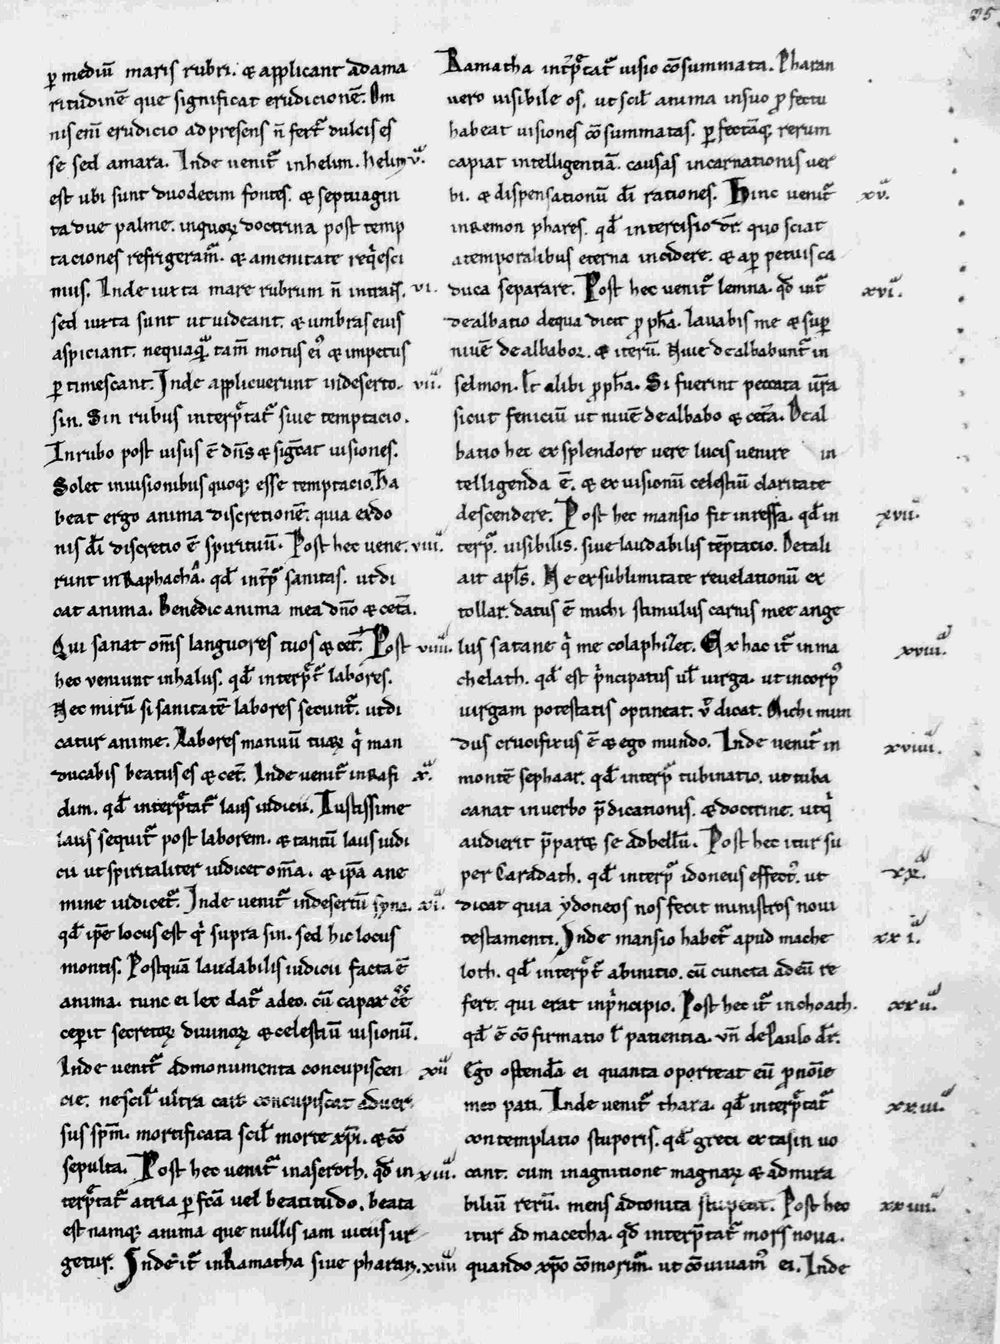 35
ꝑ mediū maris rubri. & applicant adama
ritudinē que significat erudicionē. Om
nis eni erudicio adpresens n̄ fert dulcis es
se sed amara. Inde uenit̄ inhelim. helim v.ᵃ
est ubi sunt duodecim fontes. & septuagin
ta due palme. inquoꝝ doctrina post temp
taciones refrigeram̄. & amenitate reqͥesci
mus. Inde iuxta mare rubrum n̄ intrās. vi.
sed iuxta sunt ut uideant. & umbras eius
aspiciant. nequaqᵃ tam̄ motus ei᷒ & impetus
ꝑ timescant. Inde applicuerunt indeserto. vii.ᵃ
sin. Sin rubus interp̄tat̄ siue temptacio.
Inrubo post uisus ē dn̄s & sigc̄at uisiones.
Solet inuisionibus quoqꝫ esse temptacio. ha
beat ergo anima discretionē. quia exdo
nis dī discretio ē spirituū. Post hec uene. viii.ᵃ
runt inRaphachā. qd̄ intp̄ sanitas. utdi
cat anima. Benedic anima mea dn̄o & cetā.
Qui sanat om̄s languores tuos & cet̄. Post viiii.ᵃ
hec ueniunt inhalus. qd̄ interp̄t̄ labores.
Nec mirū si sanitatē labores secunt̄. utdi
catur anime. Labores manuū tuaꝝ qͥ man
ducabis beatus es & cet̄. Inde uenit̄ inRafi x.ᵃ
dim. qd̄ interp̄tat̄ laus iudicii. Iustissime
laus sequit̄ post laborem. & tantū laus iudi
cii ut spiritaliter iudicet om̄a. & ip̄a ane
mine iudicet̄. Inde uenit̄ indesertū syna. xi.ᵃ
qd̄ ip̄e locus est qͥ supra sin. sed hic locus
montis. Postquā laudabilis iudicii facta ē
anima. tunc ei lex dat̄ adeo. cū capax
ceperit secretoꝝ diuinoꝝ & celestiū uisionū.
Inde uenit̄ admonumenta concupiscen xii.ᵃ
cie. nescil̄ ultra caro concupiscat aduer
sus spm̄. mortificata scil̄ morte xp̄i. & cō
sepulta. Post hec uenit̄ inaseroth. qd̄ in xiii.ᵃ
terp̄tat̄ atria ꝑfc̄a uel beatitudo. beata
est namqꝫ anima que nullis iam uiciis ur
getur. Inde it̄ inRamatha siue pharan. xiiii.ᵃ
Ramatha intp̄tat̄ uisio cōsummata. Pharan
uero uisibile os. ut scil̄ anima insuo ꝓfectu
habeat uisiones cōsummatas. ꝑfectāqꝫ rerum
capiat intelligentiā. causas incarnationis uer
bi. & dispensationū dī rationes. Hinc uenit̄ xv.ᵃ
inRemon phares. qd̄ intercisio dr̄. quo sciat
atemporalibus eterna incidere. & aꝑpetuis ca
duca separare. Post hec uenit̄ lemna. qd̄ int̄ xvi.ᵃ
dealbatio dequa dicit ꝓph̄a. lauabis me & suꝑ
niuē dealbabor. & iterū. Niue dealbabunt̄ in
selmon. It̄ alibi ꝓph̄a. Si fuerint peccata ur̄a
sicut feniciū ut niuē dealbabo & cetā. Deal
batio hec ex splendore uere lucis uenire in
telligenda ē. & ex uisionū celestiū claritate
descendere. Post hec mansio fit inressa. qd̄ in xvii.ᵃ
terp̄. uisibilis. siue laudabilis tēptacio. Detali
ait apl̄s. Ne exsublimitate reuelationū ex
tollar. datus ē michi stimulus carnis mee ange
lus satane qͥ me colaphizet. Ex hac it̄ in ma xviii.ᵃ
chelath. qd̄ est pͥncipatus ul̄ uirga. ut incorp᷒
uirgam potestatis optineat. & dicat. Michi mun
dus crucifixus ē & ego mundo. Inde uenit̄ in xviiii.ᵃ
montē sephaar. qd̄ interp̄ tubinatio. ut tuba
canat inuerbo p̄dicationis. & doctrine. utqͥ
audierit p̄paret se adbellū. Post hec itur su
per Caradath. qd̄ interp̄ idoneus effect᷒. ut xx.ᵃ
dicat quia ydoneos nos fecit ministros noui
testamenti. Inde mansio habet̄ apud mache xxi.ᵃ
loth. qd̄ interp̄t̄ abinitio. cū cuncta adeū re
fert. qui erat inpͥncipio. Post hec it̄ inchoach. xxii.ᵃ
qd̄ ē cōfirmatio l̄ patientia. un̄ dePaulo dr̄.
Ego ostendā ei quanta oporteat eū ꝓnōie
meo pati. Inde uenit̄ thara. qd̄ interp̄tat̄ xxiii.ᵃ
contemplatio stuporis. qd̄ greci extasin uo
cant. cum inagnitione magnaꝝ & admira
biliū rerū. mens adtonita stupeat. Post hec xxiiii.ᵃ
itur ad macetha. qd̄ interp̄tat̄ mors noua.
quando xp̄o cōmorim̄. ut cōuiuam᷒ ei. Inde